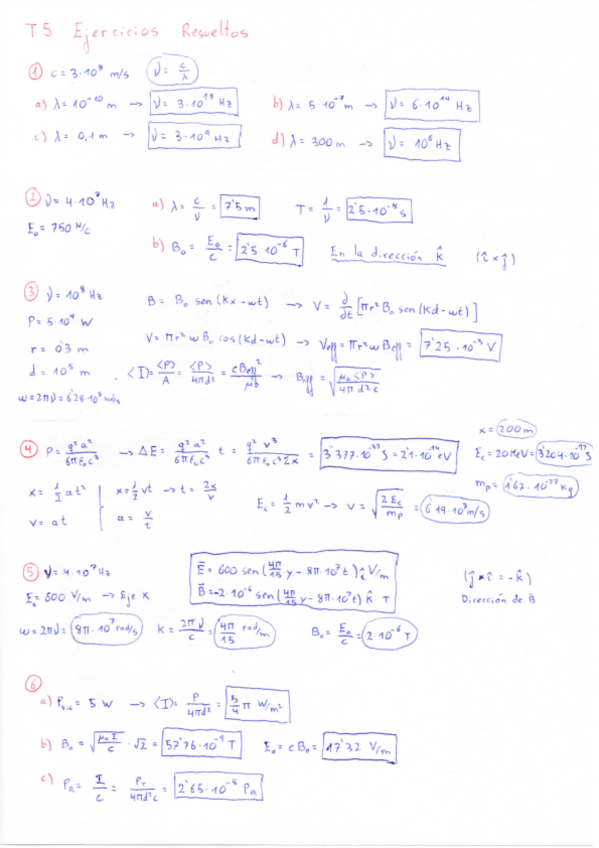 T5 Ejercicios Resueltos
① c = 3·10⁸ m/s ν = c/λ
a) λ = 10⁻¹⁰ m → ν = 3·10¹⁸ Hz b) λ = 5·10⁻⁷ m → ν = 6·10¹⁴ Hz
c) λ = 0,1 m → ν = 3·10⁹ Hz d) λ = 300 m → ν = 10⁶ Hz
② ν = 4·10⁷ Hz a) λ = c/ν = 7'5 m T = 1/ν = 2'5·10⁻⁸ s
E₀ = 750 N/C b) B₀ = E₀/c = 2'5·10⁻⁶ T En la dirección k̂ (î × ĵ)
③ ν = 10⁸ Hz B = B₀ sen (kx - wt) → V = ∂/∂t [πr² B₀ sen (kd - wt)]
P = 5·10⁴ W
r = 0'3 m V = πr² w B₀ cos (kd - wt) → Veff = πr² w Beff = 7'25·10⁻³ V
d = 10⁵ m ⟨I⟩ = ⟨P⟩/A = ⟨P⟩/4πd² = cBeff²/μ₀ → Beff = √(μ₀⟨P⟩/4πd²c)
w = 2πν = 6'28·10⁸ rad/s
x = 200 m
④ P = q²a²/6πε₀c³ → ΔE = q²a²/6πε₀c³ t = q² v³/6πε₀c³2x = = 2'1·10⁻¹⁴ eV Ec = 20 MeV = 3'204·10⁻¹² J
mp = 1'67·10⁻²⁷ kg
x = 1/2 at² x = 1/2 vt → t = 2x/v Ec = 1/2 mv² → v = √(2Ec/mp) = 6'19·10⁷ m/s
v = at a = v/t
⑤ ν = 4·10⁷ Hz E⃗ = 600 sen (4π/15 y - 8π·10⁷t) î V/m (ĵ × î = -k̂)
E₀ = 600 V/m → Eje X B⃗ = -2·10⁻⁶ sen (4π/15 y - 8π·10⁷t) k̂ T Dirección de B
w = 2πν = 8π·10⁷ rad/s K = 2πν/c = 4π/15 rad/m B₀ = E₀/c = 2·10⁻⁶ T
⑥
a) = 5 W → ⟨I⟩ = P/4πd² = 5/4 π W/m²
b) B₀ = √(μ₀I/c) · √2 = 57'76·10⁻⁹ T E₀ = cB₀ = 17'32 V/m
c) PR = I/c = PT/4πd²c = 2'65·10⁻⁸ Pa